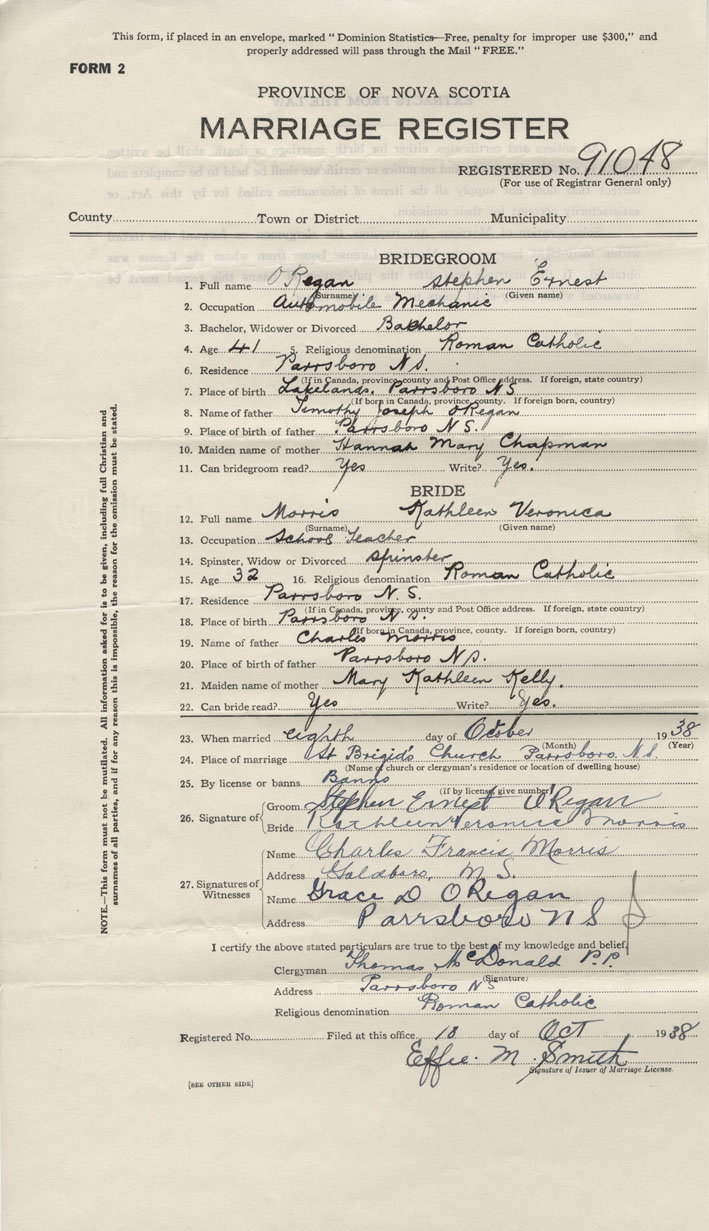 This form, if placed in an envelope, marked "Dominion Statistics—Free, penalty for improper use $300," and
properly addressed will pass through the Mail "FREE."
FORM 2
PROVINCE OF NOVA SCOTIA
MARRIAGE REGISTER
REGISTERED No. 91048
(For use of Registrar General only)
County Town or District Municipality
BRIDEGROOM
1. Full name O'Regan Stephen Ernest
(Surname) (Given name)
2. Occupation Automobile Mechanic
3. Bachelor, Widower or Divorced Bachelor
4. Age 41 5. Religious denomination Roman Catholic
6. Residence Parrsboro N.S.
(If in Canada, province, county and Post Office address. If foreign, state country)
7. Place of birth Lakelands, Parrsboro N.S.
(If born in Canada, province, county. If foreign born, country)
8. Name of father Timothy Joseph O'Regan
9. Place of birth of father Parrsboro N.S.
10. Maiden name of mother Hannah Mary Chapman
11. Can bridegroom read? Yes Write? Yes.
BRIDE
12. Full name Morris Kathleen Veronica
(Surname) (Given name)
13. Occupation School Teacher
14. Spinster, Widow or Divorced Spinster
15. Age 32 16. Religious denomination Roman Catholic
17. Residence Parrsboro N.S.
(If in Canada, province, county and Post Office address. If foreign, state country)
18. Place of birth Parrsboro N.S.
(If born in Canada, province, county. If foreign born, country)
19. Name of father Charles Morris
20. Place of birth of father Parrsboro N.S.
21. Maiden name of mother Mary Kathleen Kelly.
22. Can bride read? Yes Write? Yes.
23. When married eighth day of October 1938
(Month) (Year)
24. Place of marriage St Brigid's Church Parrsboro, N.S.
(Name of church or clergyman's residence or location of dwelling house)
25. By license or banns Banns
(If by license, give number)
26. Signature of Groom Stephen Ernest O'Regan
Bride Kathleen Veronica Morris
27. Signatures of Witnesses
Name Charles Francis Morris
Address Goldboro, N.S.
Name Grace D O'Regan
Address Parrsboro N S
I certify the above stated particulars are true to the best of my knowledge and belief.
Clergyman Thomas McDonald P.P.
(Signature)
Address Parrsboro NS
Religious denomination Roman Catholic
Registered No. Filed at this office 10 day of Oct 1938
Effie. M. Smith
Signature of Issuer of Marriage License.
[SEE OTHER SIDE]
NOTE.—This form must not be mutilated. All information asked for is to be given, including full Christian and
surnames of all parties, and if for any reason this is impossible, the reason for the omission must be stated.